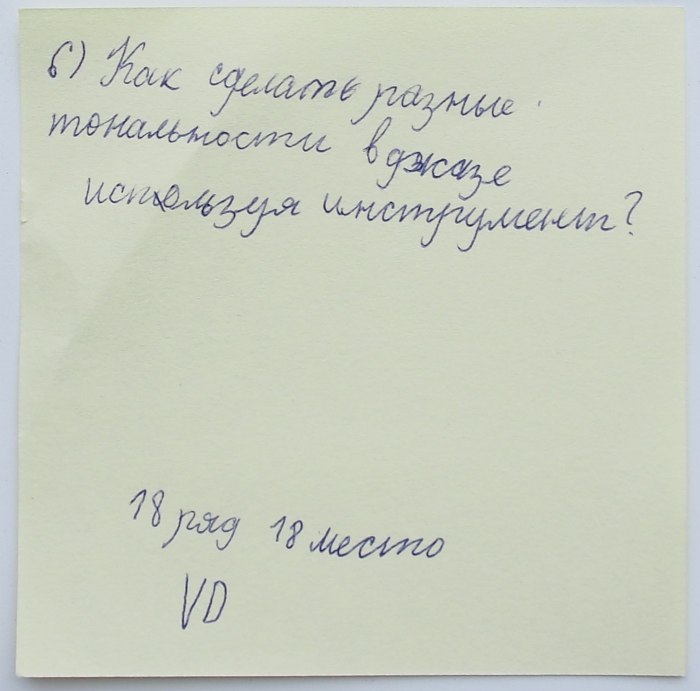 б) Как сделать разные
тональности в джазе
используя инструмент?
18 ряд 18 место
VD